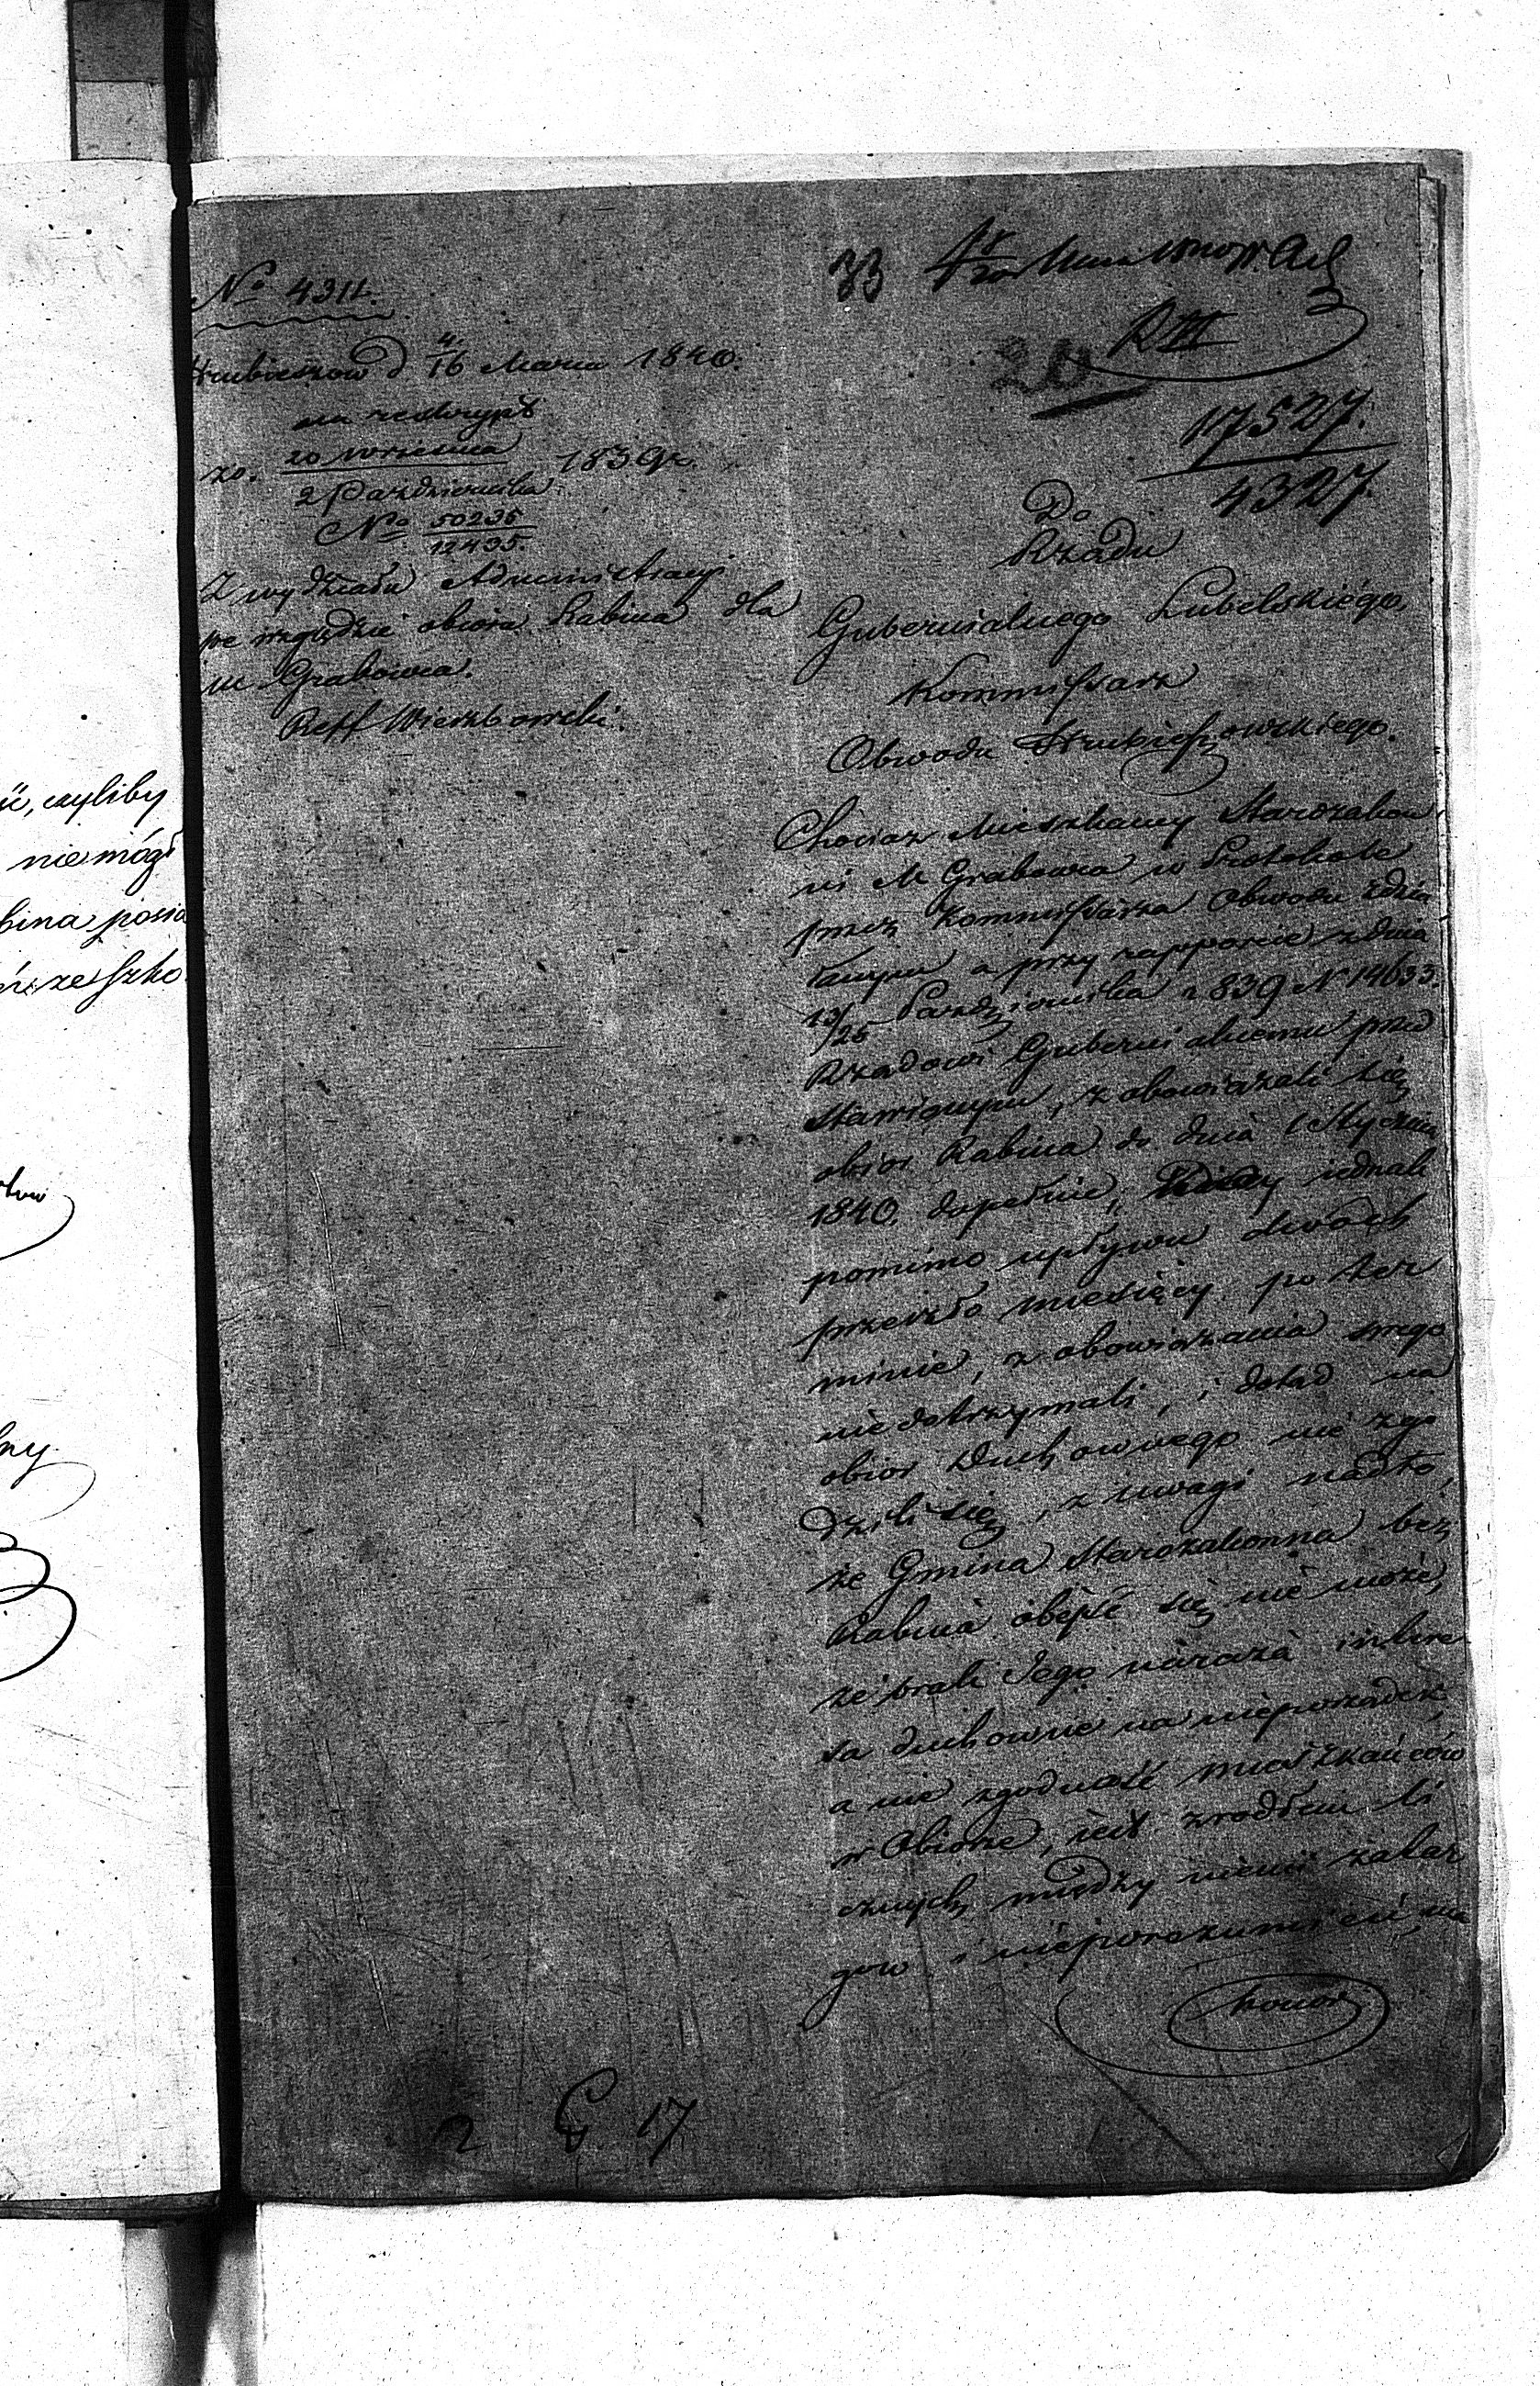 ć, czyliby
nie mógł
bina posia
ń ze Szko
lny
33
R III
20
17527.
4327.
No 4311.
Hrubieszów d 4/16 Marca 1840.
na reskrypt
zd. 20 Września / 2 Października 1839 r.
No 50235 / 12435.
Z wydziału Administracyi
we względzie obioru Rabina dla
m Grabowca.
Reff Wierzbowski.
Do
Rządu
Gubernialnego Lubelskiégo
Kommissarz
Obwodu Hrubieszowskiego.
Chociaz Mieszkancy Starozakon
ni M Grabowca w Protokole
przez Kommissarza Obwodu zdzia
łanym a przy rapporcie z dnia
13/25 Października 1839 N 14633.
Rządowi Gubernialnemu przed
stawionym, zobowiązali się
obior Rabina do dnia 1 Stycznia
1840. dopełnić, jednak
pomimo upływu dwóch
przeszło miesięcy po ter
minie, zobowiązania swego
niedotrzymali, i dotąd na
obior Duchownego nie zgo
dzili się, z uwagi nadto,
że Gmina Starozakonna bez
Rabina obejść się nie może,
że brak Jego naraża intere
sa duchowne na nieporządek,
a nie zgodność mieszkańców
w Obiorze, jest zrodłem li
cznych między niemi zatar
gow i nieporozumień, ma
honor
2 G 17